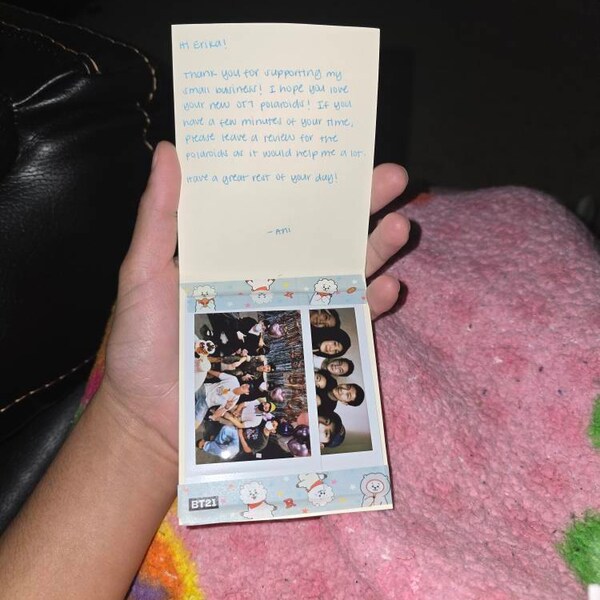 Hi Erika!
Thank you for supporting my
small business! I hope you love
your new OT7 polaroids! If you
have a few minutes of your time,
please leave a review for the
polaroids as it would help me a lot.
Have a great rest of your day!
-Ani
BT21